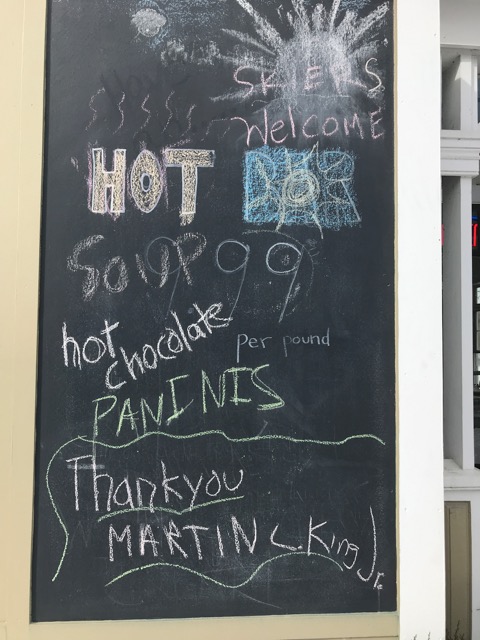 SKIERS
Welcome
HOT BAR
SOUP 9 99
hot
chocolate
per pound
PANINIS
Thankyou
MARTIN L King Jr.